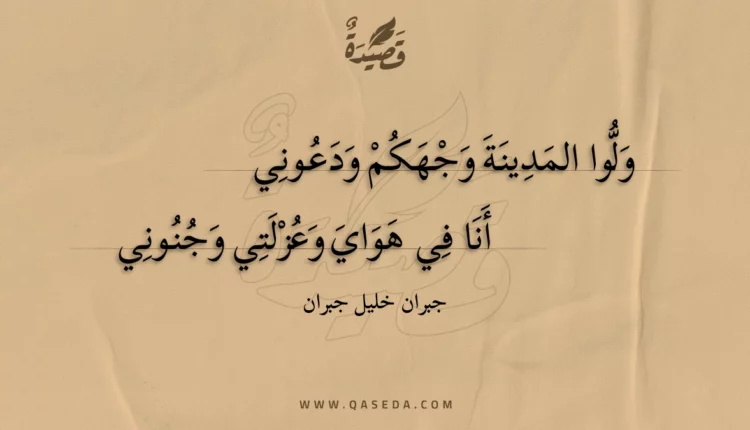 قَصِيدَةٌ
وَلُّوا المَدِينَةَ وَجْهَكُمْ وَدَعُونِي
أَنَا فِي هَوَايَ وَعُزْلَتِي وَجُنُونِي
جبران خليل جبران
WWW.QASEDA.COM